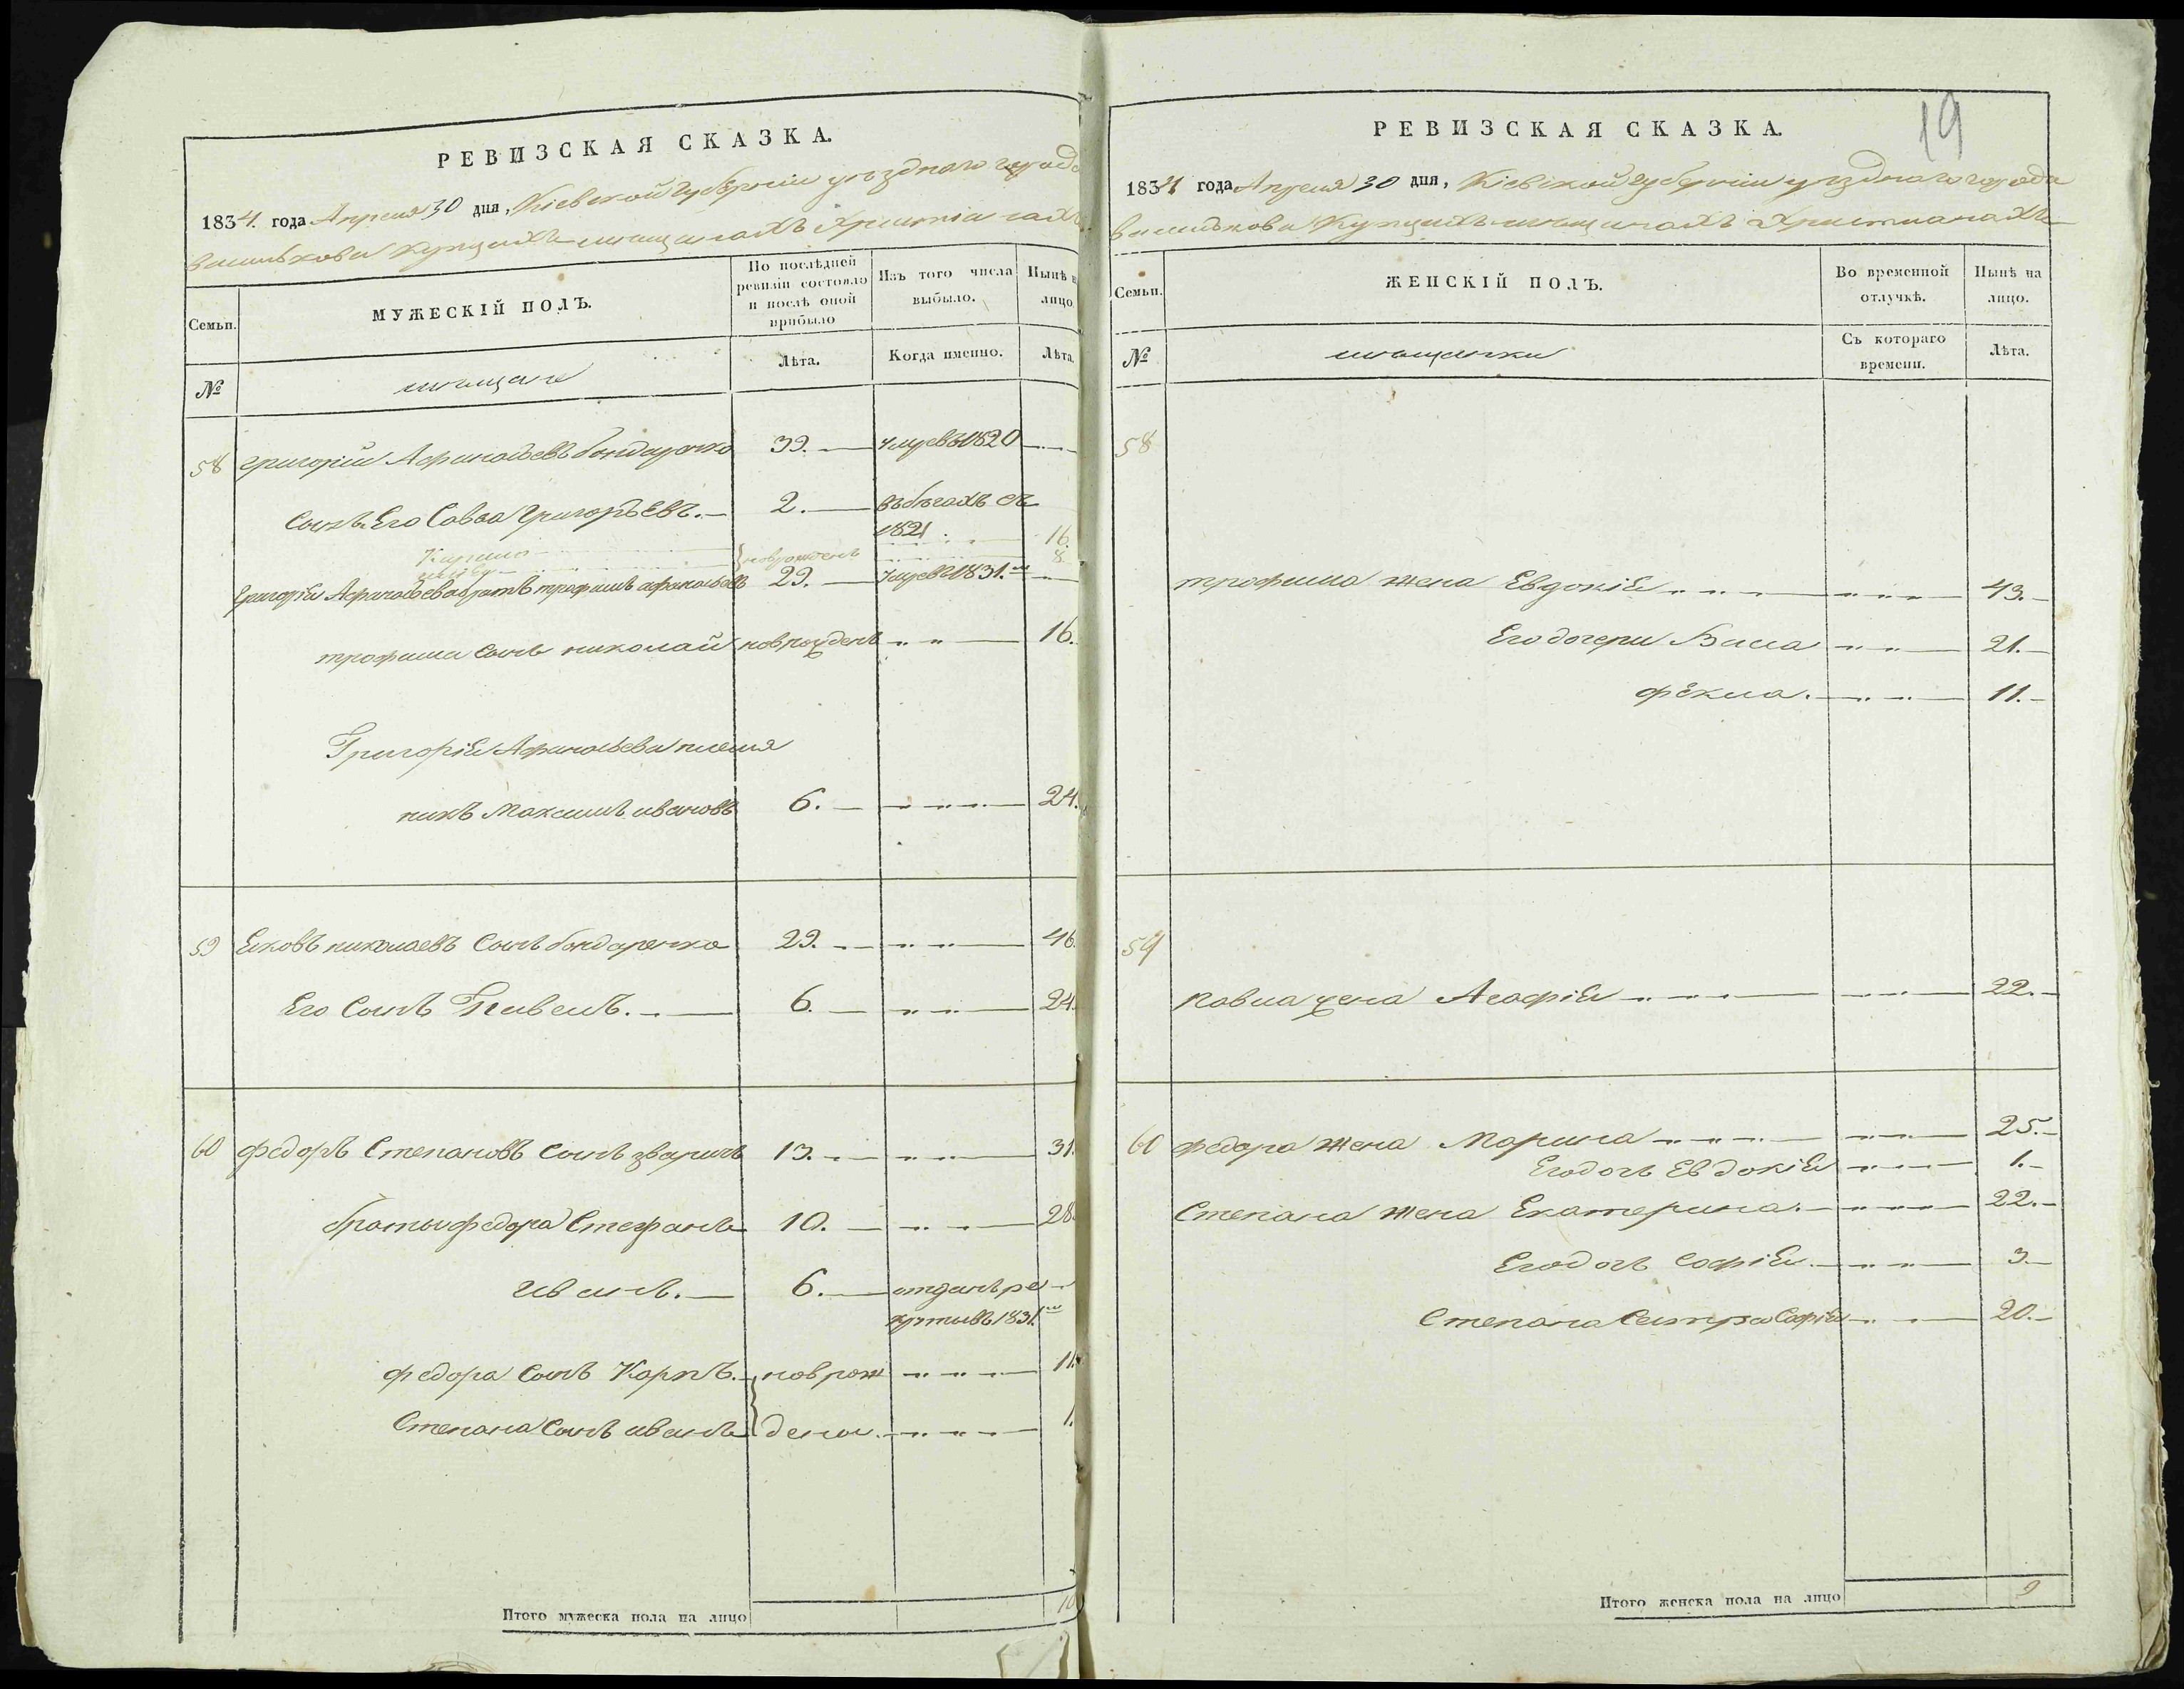 РЕВИЗСКАЯ СКАЗКА.
1834. года Апреля 30 дня, Кіевской Губерніи уѣзднаго города
Василькова Купцахъ мѣщанахъ Християнахъ
Семьи.
МУЖЕСКІЙ ПОЛЪ.
По послѣдней ревизіи состояло и послѣ оной прибыло
Изъ того числа выбыло.
Нынѣ на лицо.
№
мѣщане
Лѣта.
Когда именно.
Лѣта.
58 Григорій Афанасьевъ бондаренко 39. Умре въ 1820
Сынъ Его Савва Григорьевъ. 2. въ бѣгахъ съ
1821
Кирило 16.
новрожденъ 8
Григорія Афанасьева братъ трофимъ афанасьевъ 29. Умре въ 1831.
трофима Сынъ николай новрожденъ 16.
Григорія Афанасьева племя
никъ Максимъ ивановъ 6. 24.
59 Яковъ николаевъ Сынъ бондаренко 29. 46.
Его Сынъ Павелъ. 6. 24.
60 федоръ Степановъ Сынъ зваричъ 13. 31.
браты федора Стефанъ 10. 28.
иванъ. 6. отданъ ре
круты въ 1831.
федора Сынъ Карпъ. новрож 11.
Степана Сынъ иванъ дены. 1.
Итого мужеска пола на лицо 10
19
РЕВИЗСКАЯ СКАЗКА.
1834 года Апреля 30 дня, Кіевской губерніи уѣзднаго города
Василькова Купцахъ мѣщанахъ Християнахъ
Семьи.
ЖЕНСКІЙ ПОЛЪ.
Во временной отлучкѣ.
Нынѣ на лицо.
№
мѣщанки
Съ котораго времени.
Лѣта.
58
трофима жена Евдокія 43.
Его дочери Васа 21.
фекла. 11.
59
павла жена Агафія 22.
60 федора жена Марина 25.
Его дочь Евдокія 1.
Степана жена Екатерина. 22.
Его дочь Софія 3.
Степана Сестра Софія 20.
Итого женска пола на лицо 9